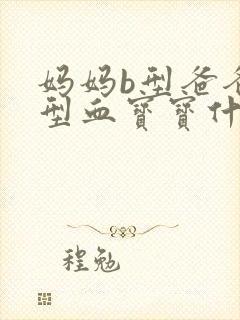 妈妈b型爸爸
型血宝宝什
程勉